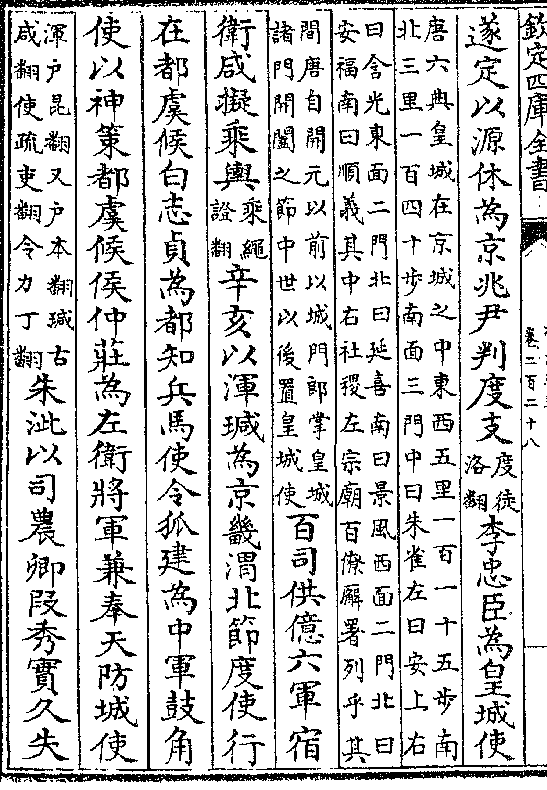 欽定四庫全書
卷二百二十八
遂定以源休為京兆尹判度支度徒洛翻李忠臣為皇城使
唐六典皇城在京城之中東西五里一百一十五步南
北三里一百四十步南面三門中曰朱雀左曰安上右
曰含光東面二門北曰延喜南曰景風西面二門北曰
安福南曰順義其中右社稷左宗廟百僚廨署列乎其
間唐自開元以前以城門郎掌皇城
諸門開闔之節中世以後置皇城使
百司供億六軍宿
衛咸擬乘輿乘繩證翻辛亥以渾瑊為京畿渭北節度使行
在都虞候白志貞為都知兵馬使令狐建為中軍鼓角
使以神策都虞候侯仲莊為左衛將軍兼奉天防城使
渾戶昆翻又戶本翻瑊古
咸翻使疏吏翻令力丁翻
朱泚以司農卿段秀實久失